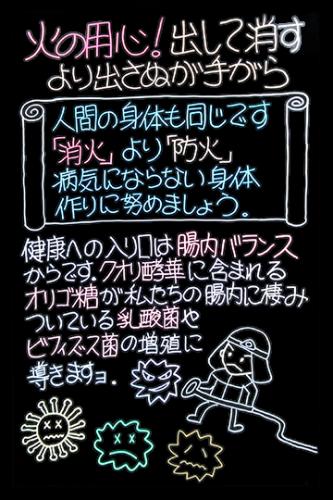 火の用心！出して消す
より出さぬが手がら
人間の身体も同じです
「消火」より「防火」
病気にならない身体
作りに努めましょう。
健康への入り口は腸内バランス
からです。クオリ酵華に含まれる
オリゴ糖が私たちの腸内に棲み
ついている乳酸菌や
ビフィズス菌の増殖に
導きますョ．